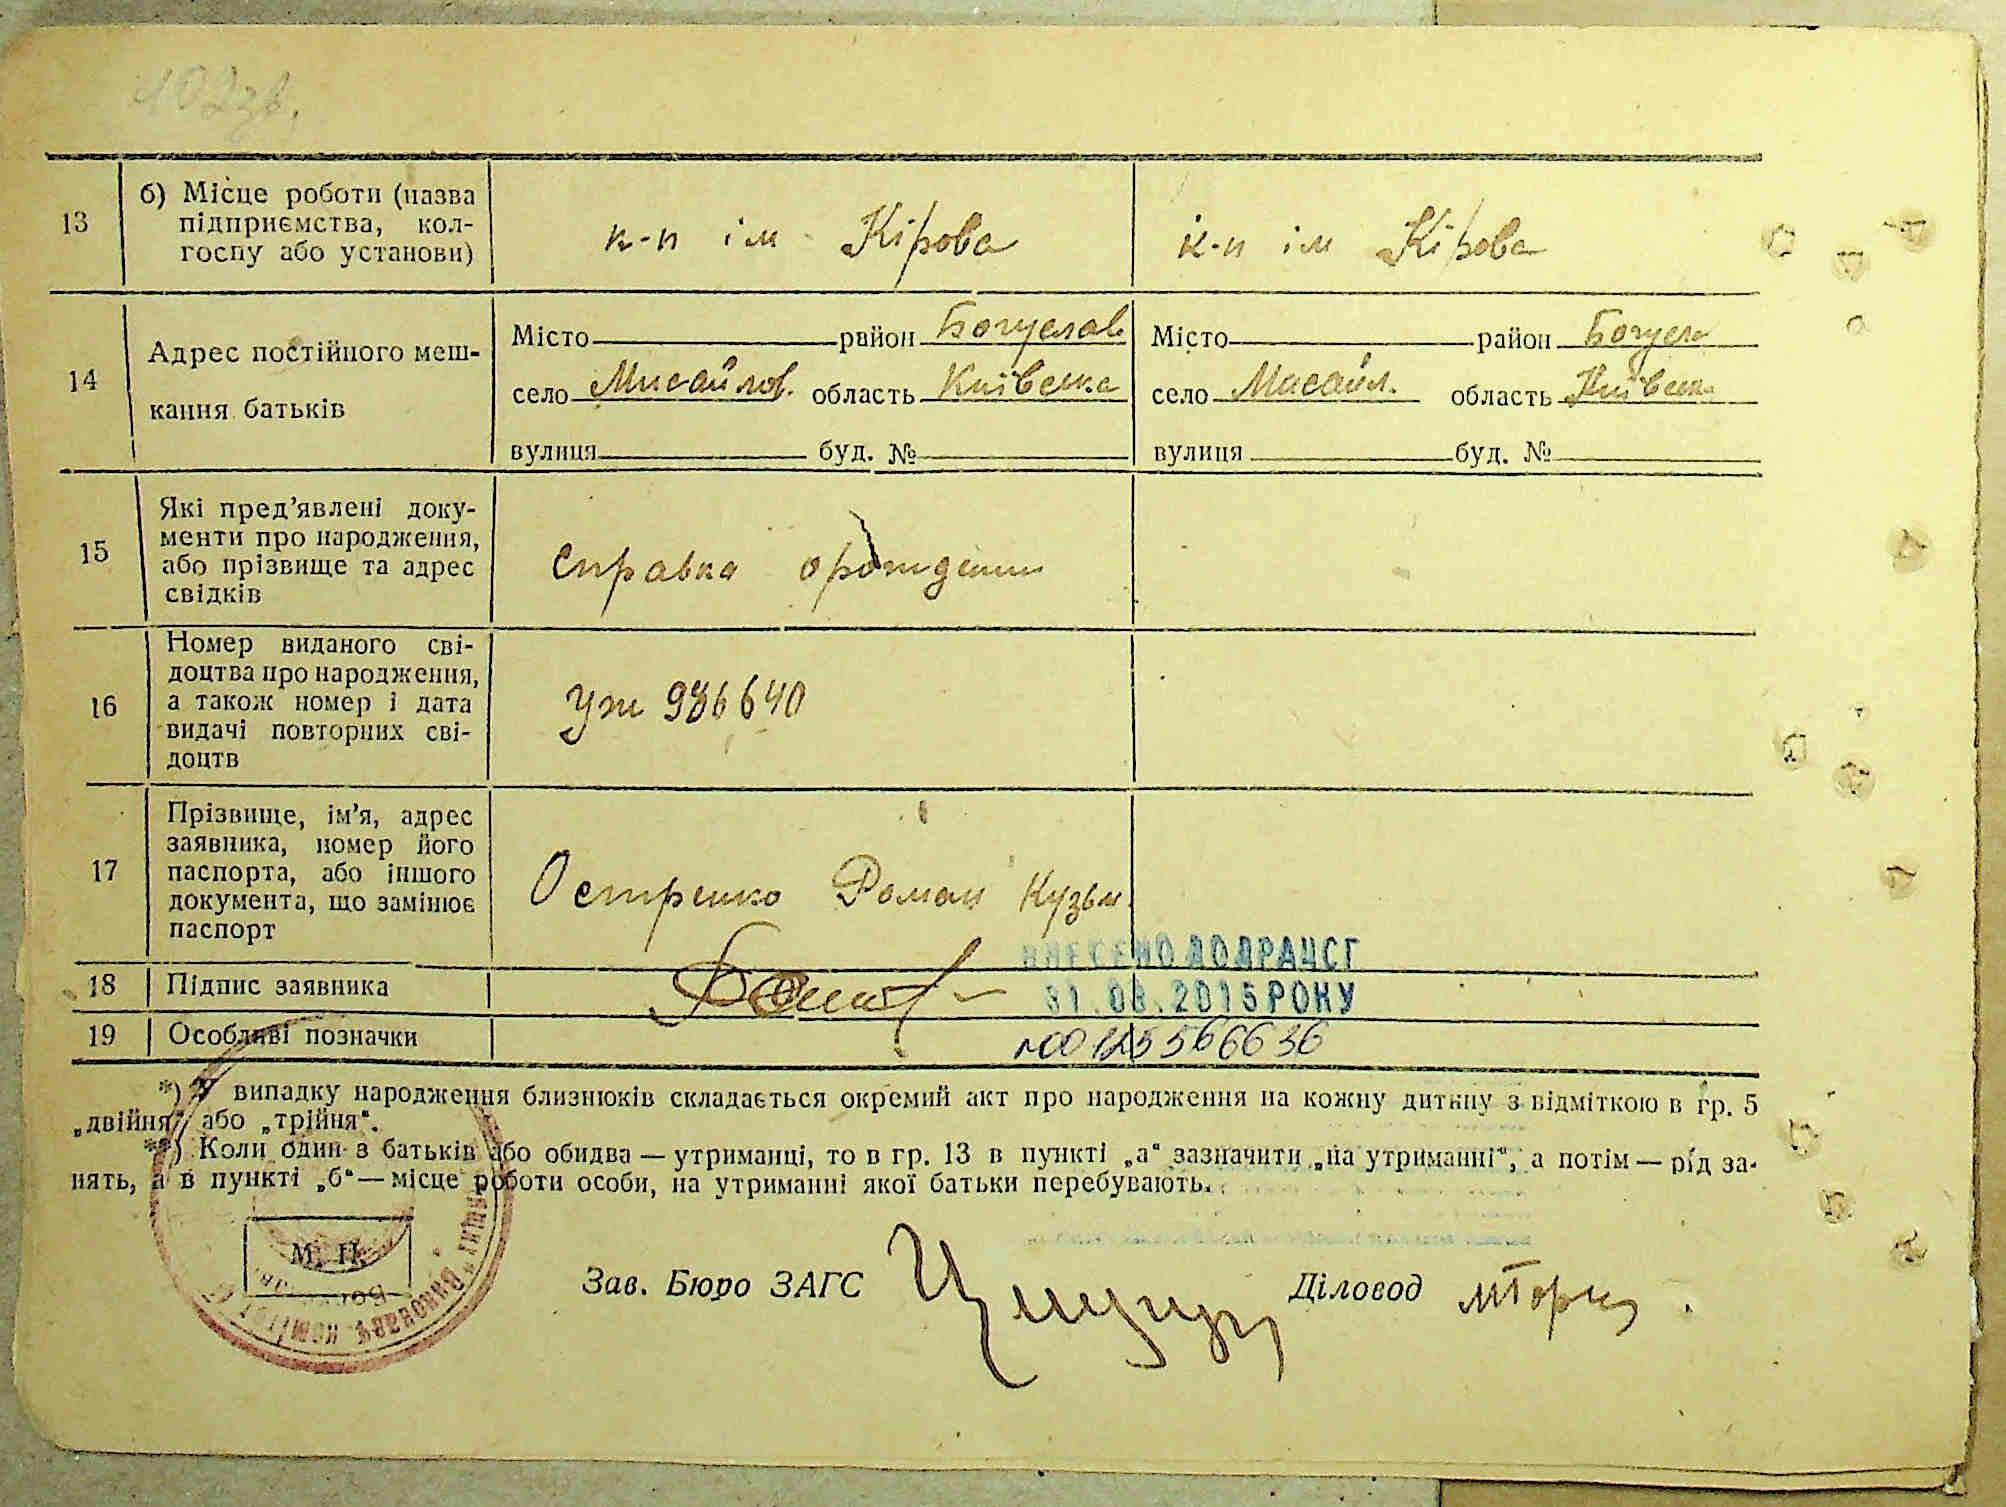 102зв.
13
б) Місце роботи (назва
підприємства, кол-
госпу або установи)
к-п ім Кірова
к-п ім Кірова
14
Адрес постійного меш-
кання батьків
Місто район Богуслав
село Мисайлов. область Київська
вулиця буд. №
Місто район Богусл
село Мисайл. область Київськ
вулиця буд. №
15
Які пред'явлені доку-
менти про народження,
або прізвище та адрес
свідків
Справка о рождении
16
Номер виданого сві-
доцтва про народження,
а також номер і дата
видачі повторних сві-
доцтв
936640
17
Прізвище, ім'я, адрес
заявника, номер його
паспорта, або іншого
документа, що замінює
паспорт
Остренко Роман Кузьм.
18
Підпис заявника
ВНЕСЕНО ДО ДРАЦСГ
31.08.2015 РОКУ
19
Особливі позначки
№00125566636
*) У випадку народження близнюків складається окремий акт про народження на кожну дитину з відміткою в гр. 5
„двійня“ або „трійня“.
**) Коли один з батьків або обидва — утриманці, то в гр. 13 в пункті „а“ зазначити „на утриманні“, а потім — рід за-
нять, а в пункті „б“ — місце роботи особи, на утриманні якої батьки перебувають.
М. П.
Зав. Бюро ЗАГС
Діловод